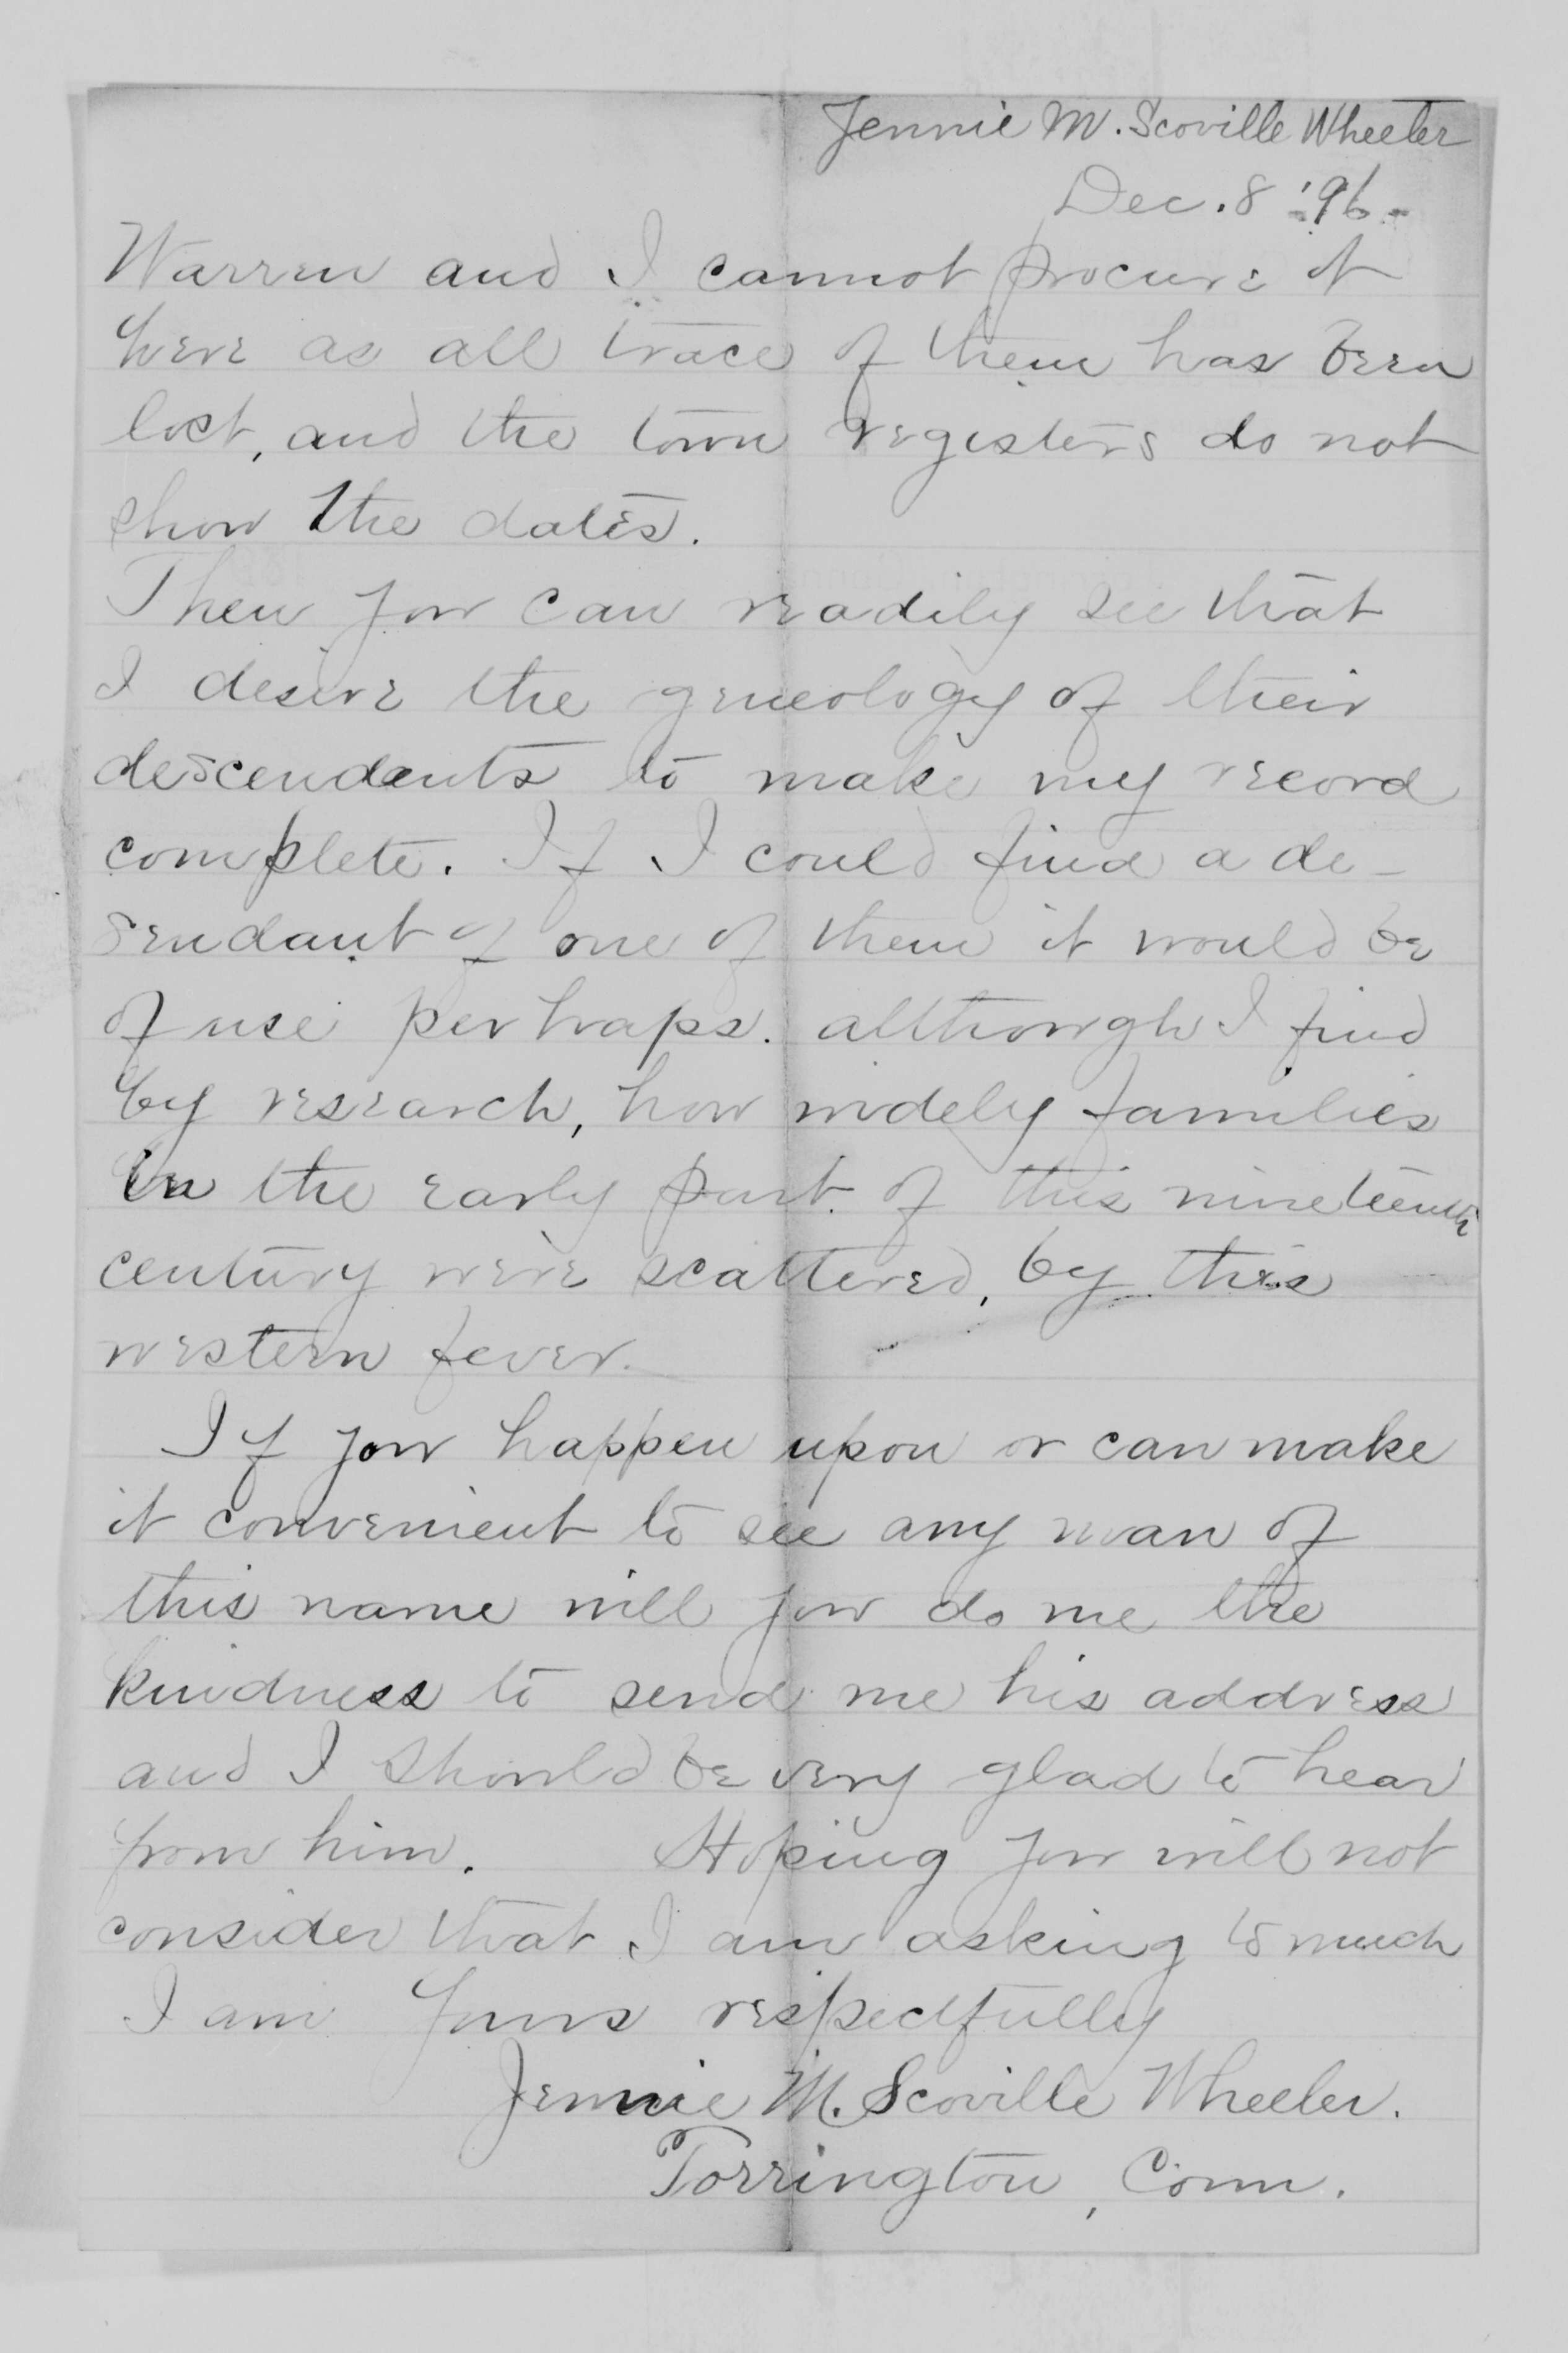 Jennie M. Scoville Wheeler
Dec. 8 '96.
Warren and I cannot procure it
here as all trace of them has been
lost, and the town registers do not
show the dates.
Then you can readily see that
I desire the geneology of their
descendents to make my record
complete. If I could find a de-
sendant of one of them it would be
of use perhaps. although I find
by research, how widely families
in the early part of this nineteenth
century were scattered, by this
western fever.
If you happen upon or can make
it convenient to see any man of
this name will you do me the
kindness to send me his address
and I should be very glad to hear
from him. Hoping you will not
consider that I am asking to much
I am Yours respectfully
Jennie M. Scoville Wheeler.
Torrington, Conn.